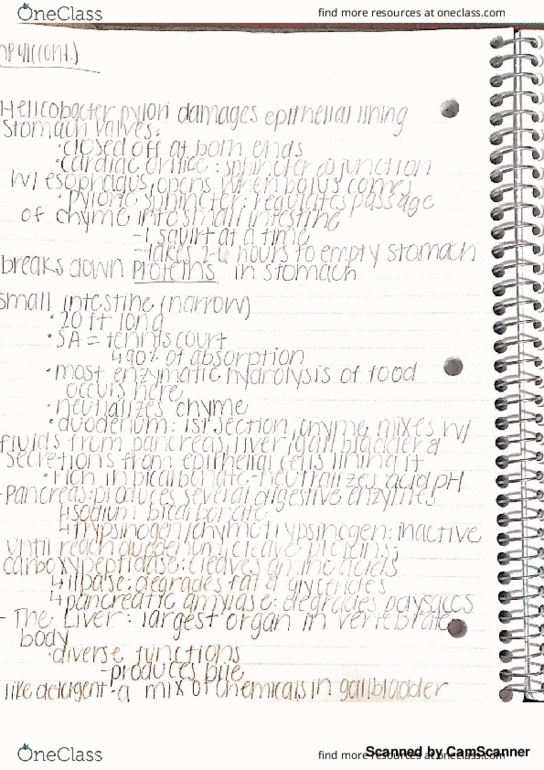 OneClass
find more resources at oneclass.com
(cont.)
Helicobacter pylori damages epithelial lining
Stomach valves:
• closed off at both ends
• cardiac orifice: sphincter @ junction
w/ esophagus, opens when bolus comes
• pyloric sphincter: regulates passage
of chyme into small intestine
- 1 squirt at a time
- takes 2-6 hours to empty stomach
breaks down proteins in stomach
small intestine (narrow)
• 20 ft long
• SA = tennis court
↳ 90% of absorption
• most enzymatic hydrolysis of food
occurs here
• neutralizes chyme
• duodenum: 1st section, chyme mixes w/
fluids from pancreas, liver, gall bladder &
secretions from epithelial cells lining it
• rich in bicarbonate - neutralizes acid pH
- Pancreas: produces several digestive enzymes
↳ sodium bicarbonate
↳ trypsinogen/chymotrypsinogen: inactive
until reach duodenum, cleave proteins;
carboxypeptidase: cleaves amino acids
↳ lipase: degrades fat & glycerides
↳ pancreatic amylase: degrades polysaccs
- The Liver: largest organ in vertebrate
body
• diverse functions
- produces bile
like detergent - a mix of chemicals in gallbladder
OneClass
find more resources at oneclass.com
Scanned by CamScanner